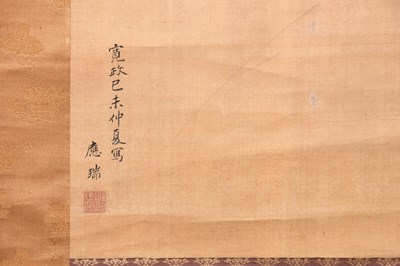 寛政己未仲夏寫
應瑞